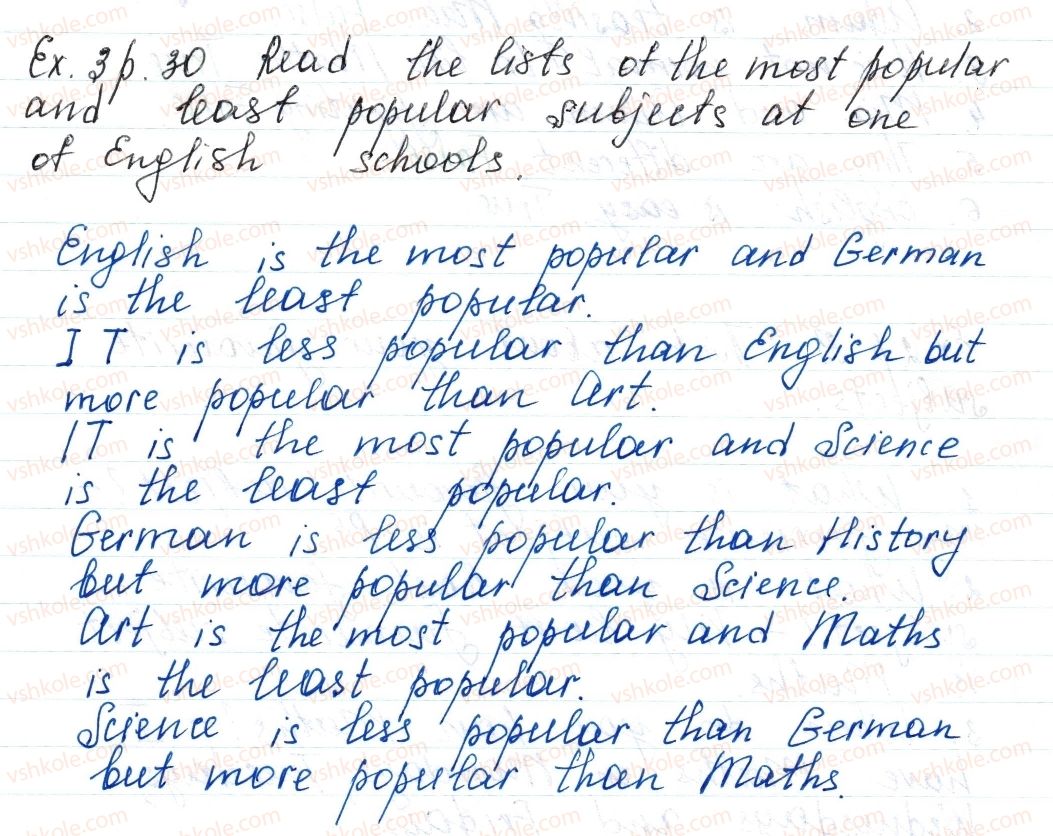 Ex. 3 p. 30 Read the lists of the most popular
and least popular subjects at one
of English schools.
English is the most popular and German
is the least popular.
IT is less popular than English but
more popular than Art.
IT is the most popular and Science
is the least popular.
German is less popular than History
but more popular than Science.
Art is the most popular and Maths
is the least popular.
Science is less popular than German
but more popular than Maths.